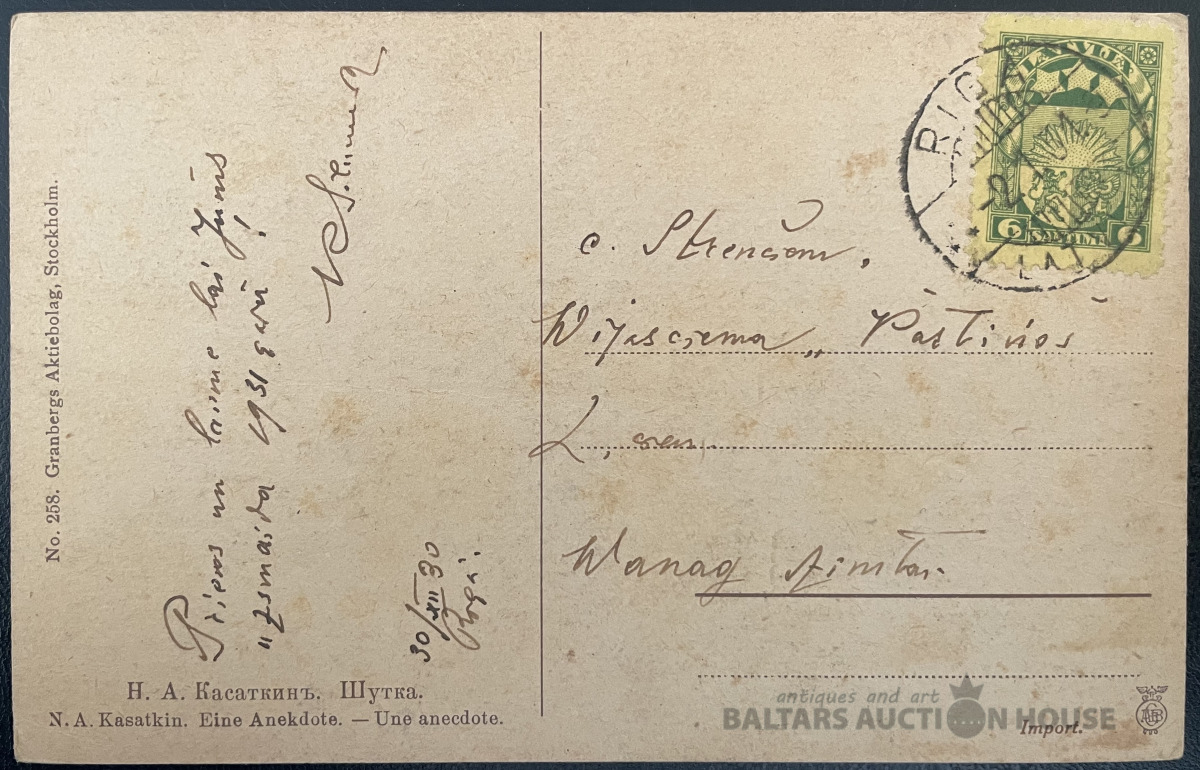 No. 258. Granbergs Aktiebolag, Stockholm.
Prieks un laime lai Jums
"zsmaida 1931 gadā!
30/XII 30
Rīgā.
Н. А. Касаткинъ. Шутка.
N. A. Kasatkin. Eine Anekdote. — Une anecdote.
LATVIJA
6 SANTIMI 6
RIGA
c. Strenčiem,
Wijasciema „Pastiņos
Wanag
antiques and art
BALTARS AUCTION HOUSE
Import.